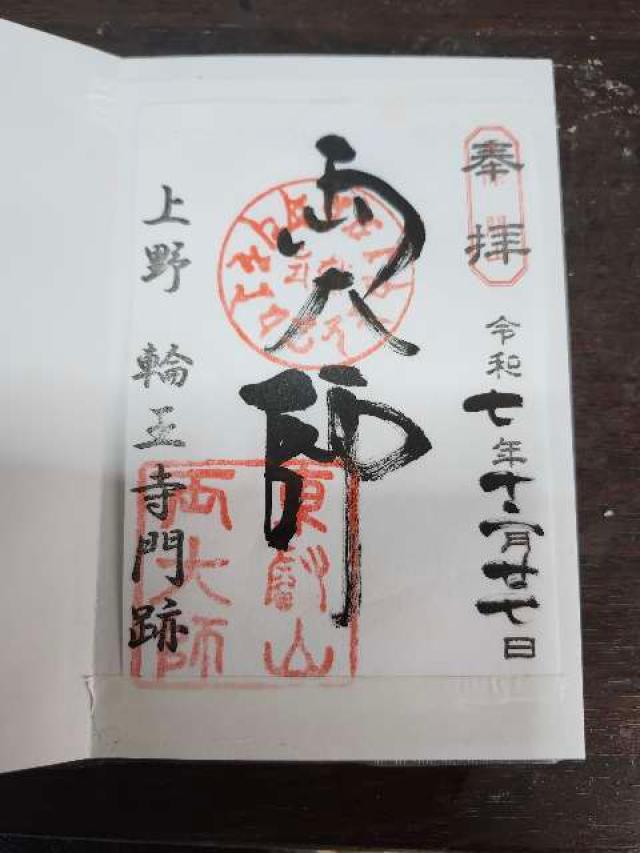 奉拝
令和七年十二月廿七日
両大師
東叡山
両大師
上野 輪王寺門跡